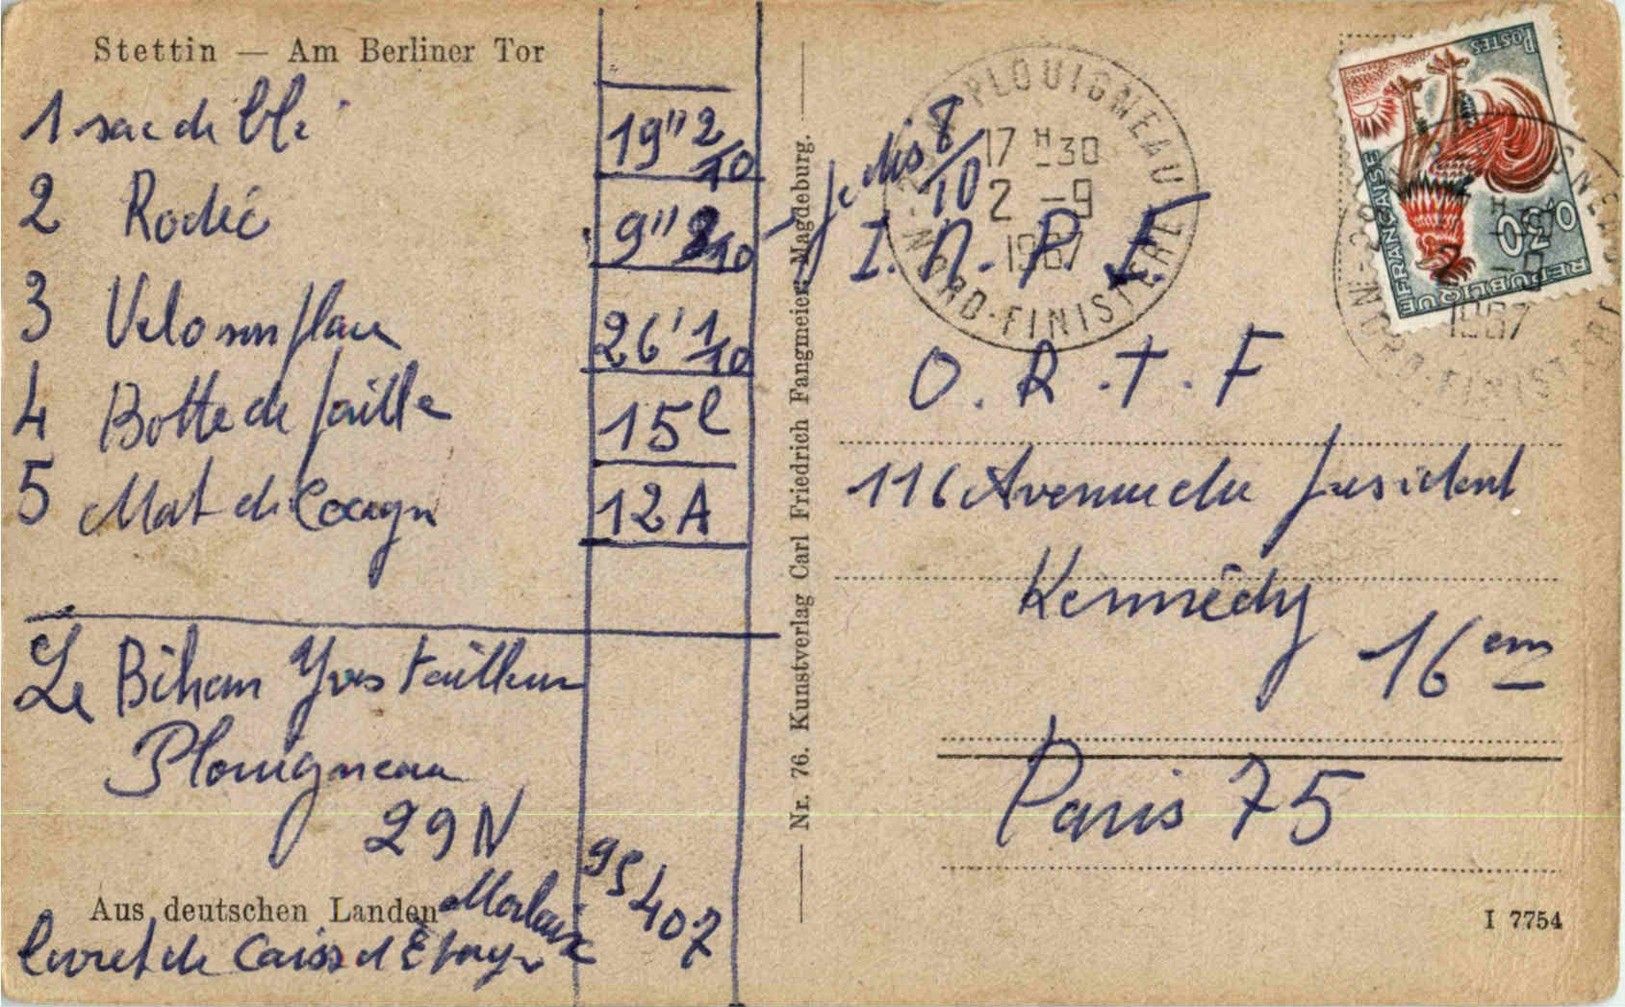 Stettin — Am Berliner Tor
1 sac de blé 19" 2/10
2 Rodéo 9"
3 Velo sur place 26' 1/10
4 Botte de paille 15 l
5 Mat de Cocagn 12 A
Le Bihan Yves tailleur
Plouigneau
29 N
Morlaix 95407
Aus deutschen Landen
livret de Caiss d'Epargn
Nr. 76. Kunstverlag Carl Friedrich Fangmeier, Magdeburg.
8/10
PLOUIGNEAU
17 H 30
2 - 9
1967
NORD-FINISTERE
I. N. P. F.
O. R. T. F
116 Avenue du president
Kennedy
16 em
Paris 75
POSTES
0,30
REPUBLIQUE FRANÇAISE
1967
I 7754